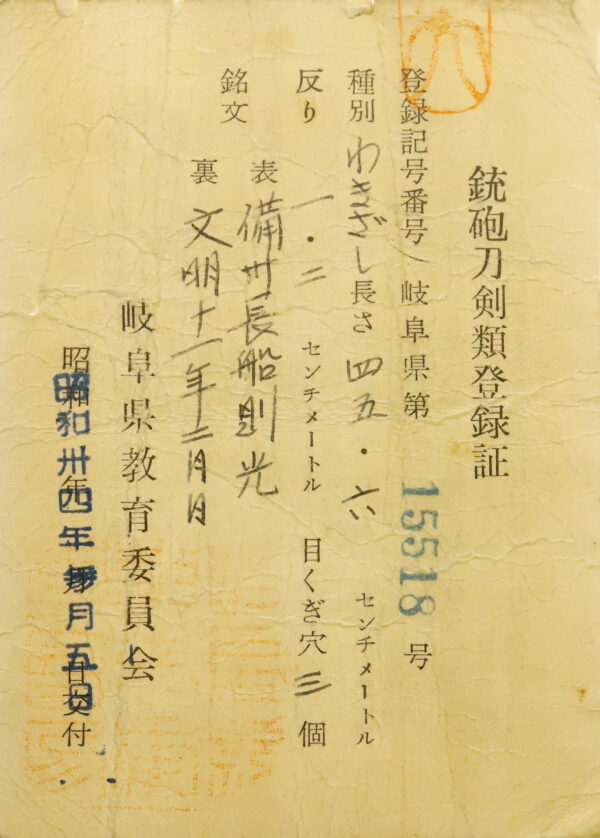 銃砲刀剣類登録証
登録記号番号 岐阜県第 15518 号
種別 わきざし 長さ 四五・六 センチメートル
反り 一・二 センチメートル 目くぎ穴 三 個
銘文 表 備州長船則光
裏 文明十一年二月日
岐阜県教育委員会
昭和卅四年 月五日交付